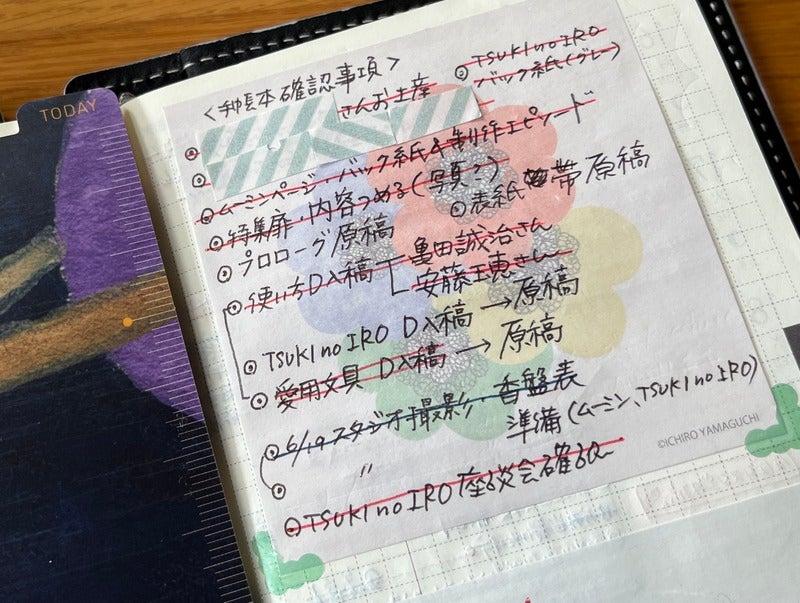 TODAY
<手帳本確認事項>
⊙TSUKI no IRO
バック紙(グレー)
さんお土産
⊙
⊙
⊙ムーミンページ・バック紙&制作エピソード
⊙特集扉・内容つめる(写真?)
⊙表紙 帯原稿
⊙プロローグ原稿
⊙使い方D入稿 亀田誠治さん
安藤玉恵さん
⊙TSUKI no IRO D入稿→原稿
⊙愛用文具 D入稿→原稿
⊙6/19スタジオ撮影・香盤表
⊙ 〃 準備(ムーミン、TSUKI no IRO)
⊙TSUKI no IRO座談会確認
©ICHIRO YAMAGUCHI